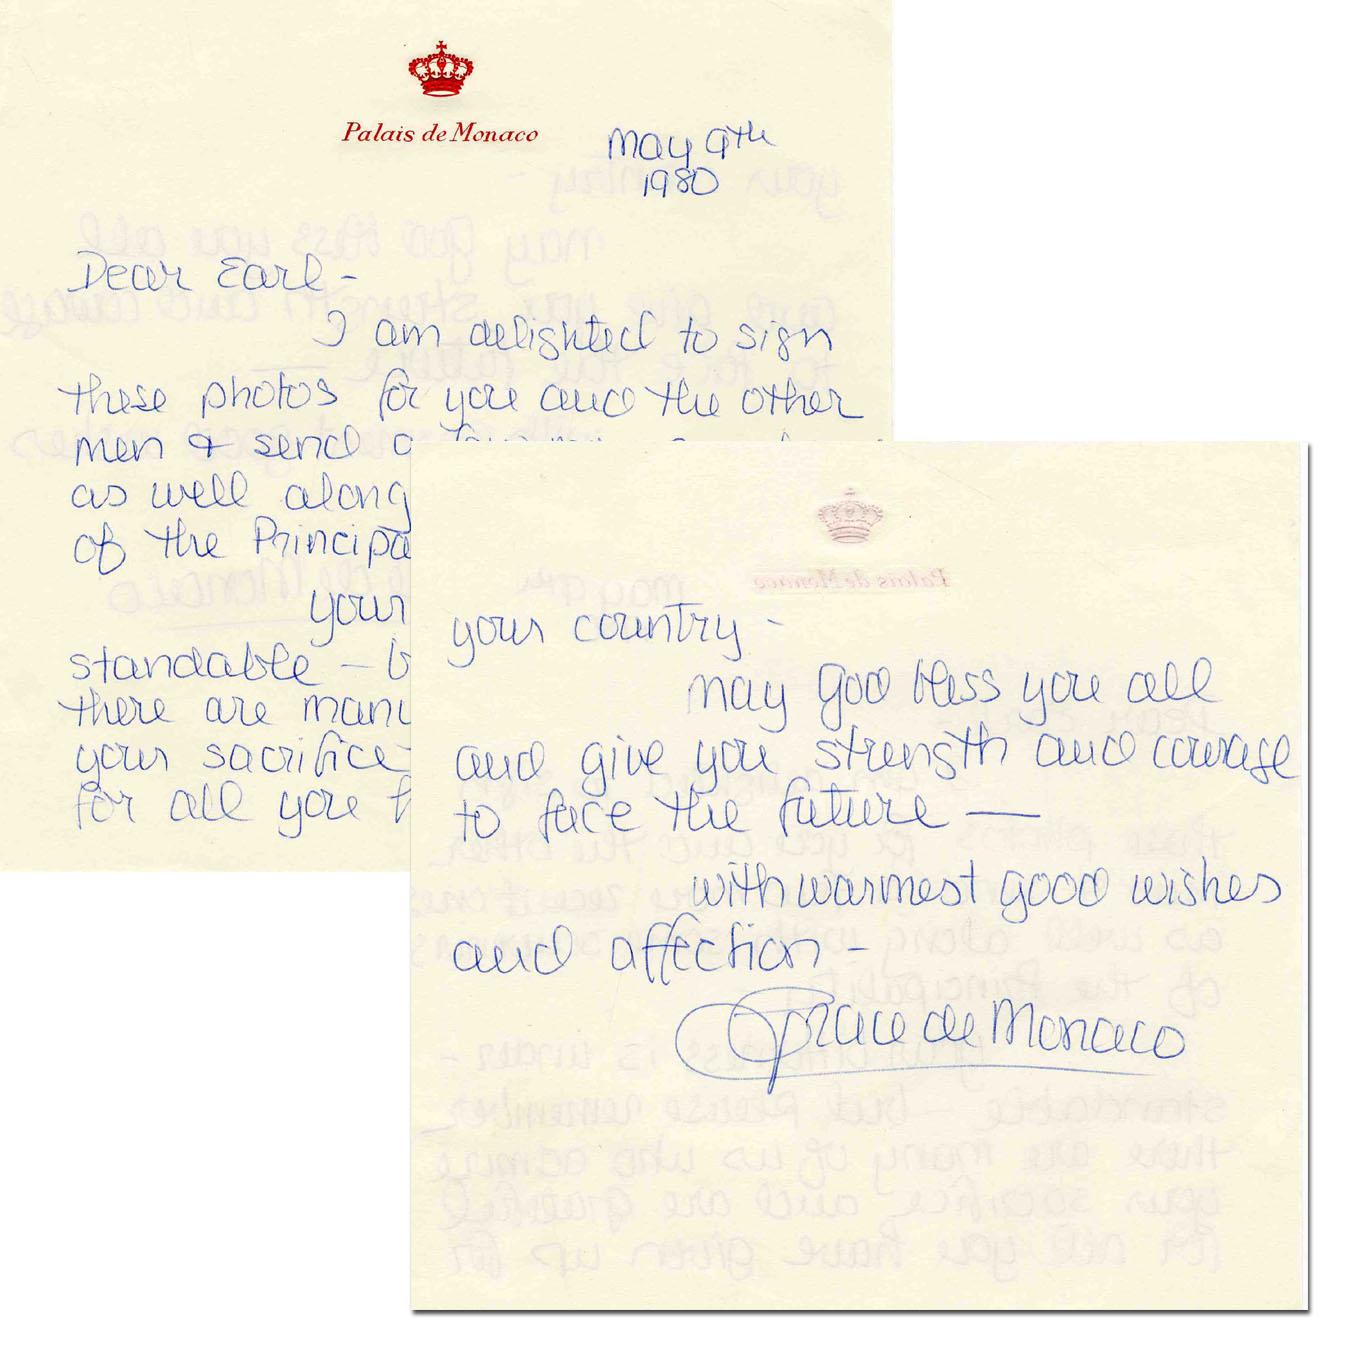 Palais de Monaco
May 9th
1980
Dear Earl -
I am delighted to sign
these photos for you and the other
men & send a few
as well along
of the Principa
your
standable - b
there are many
your sacrifice -
for all you h
Palais de Monaco
your country -
May God bless you all
and give you strength and courage
to face the future —
with warmest good wishes
and affection -
Grace de Monaco